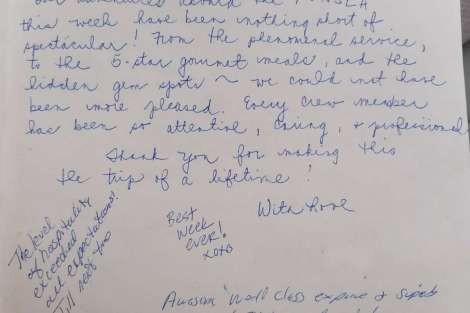 this week have been nothing short of
spectacular! From the phenomenal service,
to the 5-star gourmet meals, and the
hidden gem spots ~ we could not have
been more pleased. Every crew member
has been so attentive, caring, & professional
Thank you for making this
the trip of a lifetime!
With love
Best
week
ever!
xoxo
The level
of hospitality
exceeded
all expectations!
Class